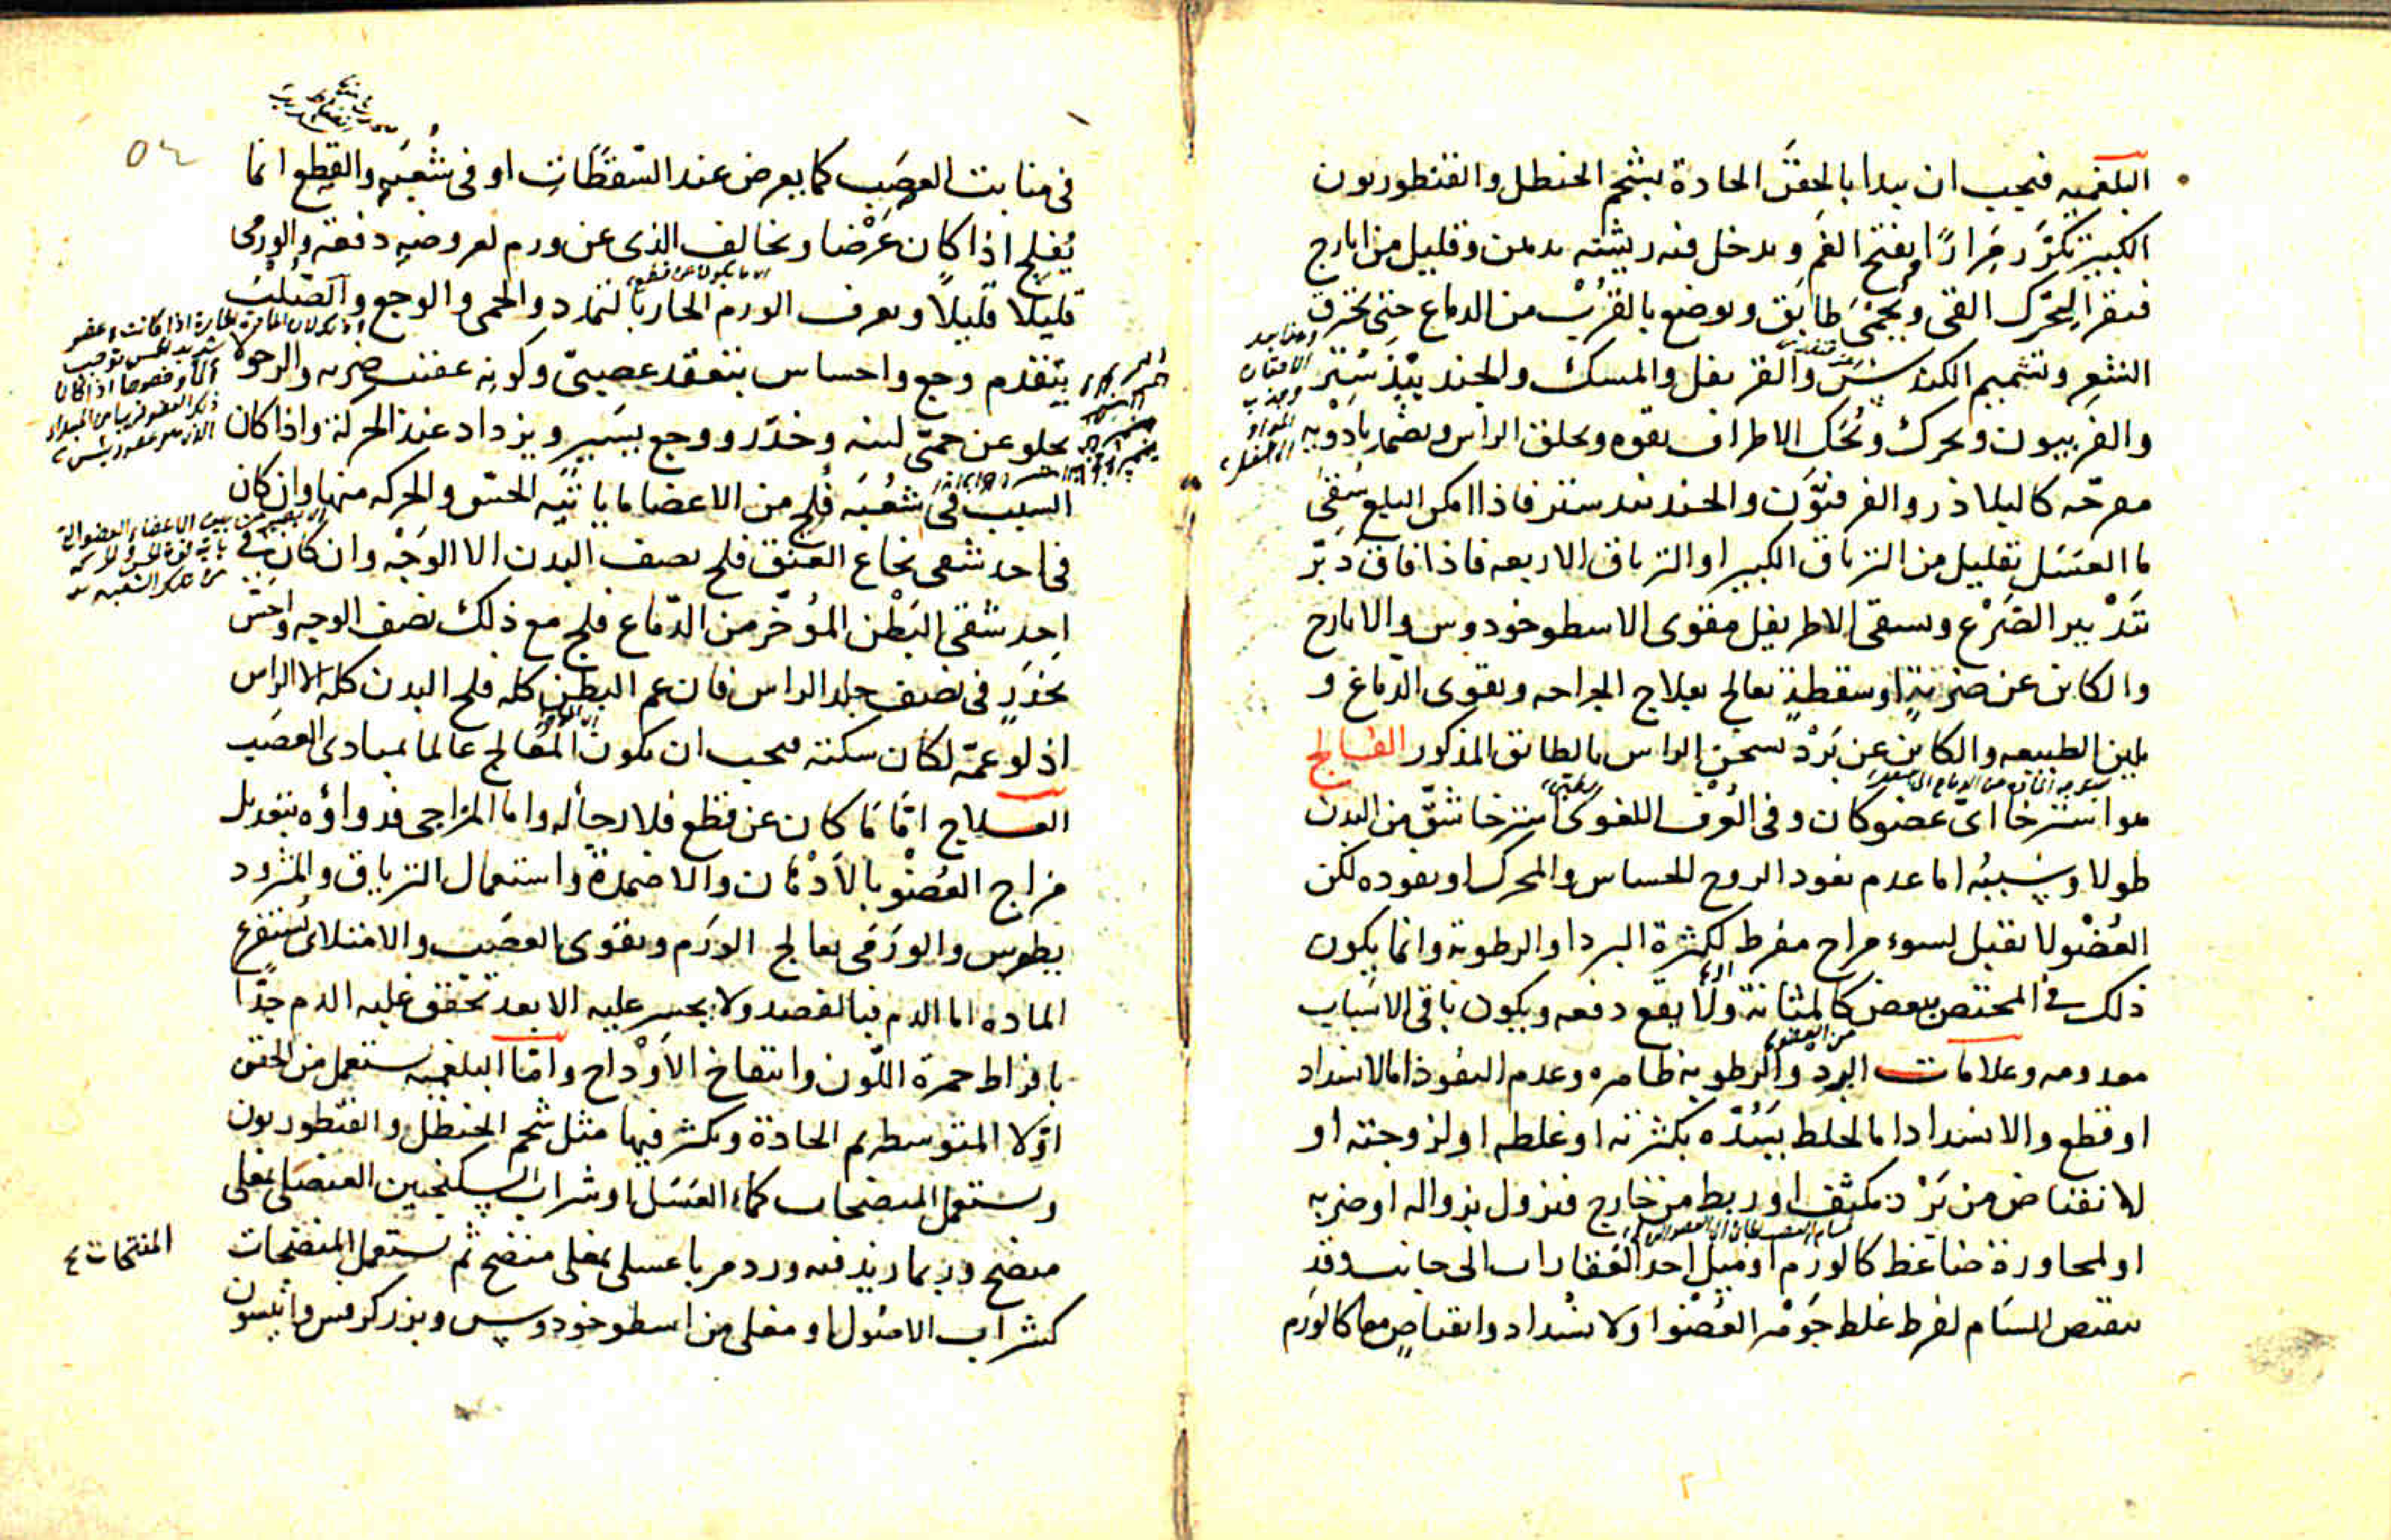 البلغميه فيجب ان يبدا بالحقن الحادة بشحم الحنظل والقنطوريون
الكبير تكرر مرارًا بفتح الفم ويدخل فيه ريشه بدهن وقليل من ايارج
فيقرا ليحرك القى ويحمى طابق ويوضع بالقرب من الدماع حتى يحرق
الشعر وتشميم الكندس والقرنفل والمسك والجندبيدستر
والفربيون ويحرك وتحك الاطراف بقوه ويحلق الراس ويضمد بادويه
مقرحه كالبلاذر والفرفيون والجندبيدستر فاذا امكن البلع سقى
ما العسل بقليل من الترياق الكبير او الترياق الاربعه فاذا فاق دبر
تدبير الصرع ويسقى الاطريفل مقوى الاسطوخودوس والايارج
والكاين عن ضربةٍ او سقطةٍ يعالج بعلاج الجراحه وبقوى الدماغ و
بلين الطبيعه والكاين عن برد يسخن الراس بالطابق المذكور الفالج
هو استرخا اى عضو كان وفى العرف اللغوى استرخا شق من البدن
طولا وسببه اما عدم نفود الروح الحساس والمحرك او نفوده لكن
العضو لا يقبل لسوء مزاج مفرط لكثرة البرد او الرطوبة وانما يكون
ذلك فى المختص ببعض كالمثانة ولا يقع دفعه ويكون باقى الاسباب
معدومه وعلامات البرد والرطوبه ظاهره وعدم النفوذ اما لانسداد
او قطع والانسداد اما لخلط يسده بكثرته او غلظه او لزوجته او
لانقباض من برد مكثف او ربط من خارج فيزول بزواله او ضربه
او لمجاورة ضاغط كالورم او ميل احد الفقارات الى جانب وقد
ينقبض المسام لفرط غلظ جوهر العضو او لانسداد وانقباض معا كالورم
٥٤
فى منابت العصب كما يعرض عند السقطات او فى شعبه والقطع انما
يفلج اذا كان عرضا ويخالف الذى عن ورم لعروضه دفعه والورمى
قليلا قليلًا ويعرف الورم الحار بالتمدد والحمى والوجع والصلب
يتقدم وجع واحساس بتعقد عصبى وكونه عقيب ضربه والرخو لا
يخلو عن حمى لينه وخدر ووجع يسير ويزداد عند الحركة واذا كان
السبب فى شعبه فلج من الاعضا ما ياتيه الحس والحركه منها وان كان
فى احد شقى نخاع العنق فلج نصف البدن الا الوجه وان كان فى
احد شقى البطن المؤخر من الدماغ فلج مع ذلك نصف الوجه واحس
بخدر فى نصف جلد الراس فان عم البطن كله فلج البدن كله الا الراس
اذ لو عمه لكان سكته فيجب ان يكون المعالج عالما بمبادى العصب
العلاج اما ما كان عن قطع فلا رجا له واما المزاجى فدواؤه بتعديل
مزاج العضو بالادهان والاضمدة واستعمال الترياق والمثرود
يطوس والورمى يعالج الورم وبقوى العصب والامتلائى يستفرغ
الماده اما الدم فبالفصد ولا يجسر عليه الا بعد تحقق غلبه الدم جدًا
بافراط حمرة اللون وانتفاخ الاوداج واما البلغميه يستعمل من الحقن
اولا المتوسطه ثم الحادة ويكثر فيها مثل شحم الحنظل والقنطوريون
ويستعمل المنضجات كماء العسل او شراب السكنجبين العنصلى بمغلى
منضج وربما زيد فيه ورد مربا عسلى بمغلى منضج ثم يستعمل المنضجات
المفتحات
كشراب الاصول او مغلى من اسطوخودوس وبزر كرفس وانيسون